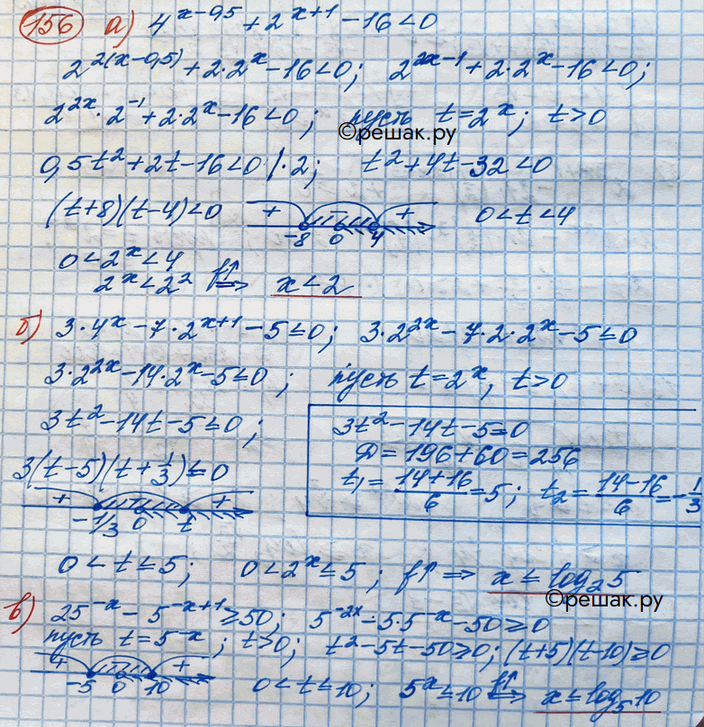 156 а) 4^(x-0,5) + 2^(x+1) - 16 < 0
2^(2(x-0,5)) + 2·2^x - 16 < 0; 2^(2x-1) + 2·2^x - 16 < 0;
2^(2x)·2^(-1) + 2·2^x - 16 < 0; пусть t = 2^x; t > 0
©решак.ру
0,5t² + 2t - 16 < 0 /·2; t² + 4t - 32 < 0
(t+8)(t-4) < 0 + + 0 < t < 4
-8 0 4
0 < 2^x < 4
2^x < 2² f↑ ⇒ x < 2
б) 3·4^x - 7·2^(x+1) - 5 ≤ 0; 3·2^(2x) - 7·2·2^x - 5 ≤ 0
3·2^(2x) - 14·2^x - 5 ≤ 0; пусть t = 2^x, t > 0
3t² - 14t - 5 ≤ 0;
3t² - 14t - 5 = 0
D = 196 + 60 = 256
t₁ = (14+16)/6 = 5; t₂ = (14-16)/6 = -1/3
3(t-5)(t+1/3) ≤ 0
+ +
-1/3 0 t
0 < t ≤ 5; 0 < 2^x ≤ 5; f↑ ⇒ x ≤ log₂5
©решак.ру
в) 25^(-x) - 5^(-x+1) ≥ 50; 5^(-2x) - 5·5^(-x) - 50 ≥ 0
пусть t = 5^(-x); t > 0; t² - 5t - 50 ≥ 0; (t+5)(t-10) ≥ 0
+ +
-5 0 10 0 < t ≤ 10; 5^x ≤ 10 f↑ ⇒ x ≤ log₅10